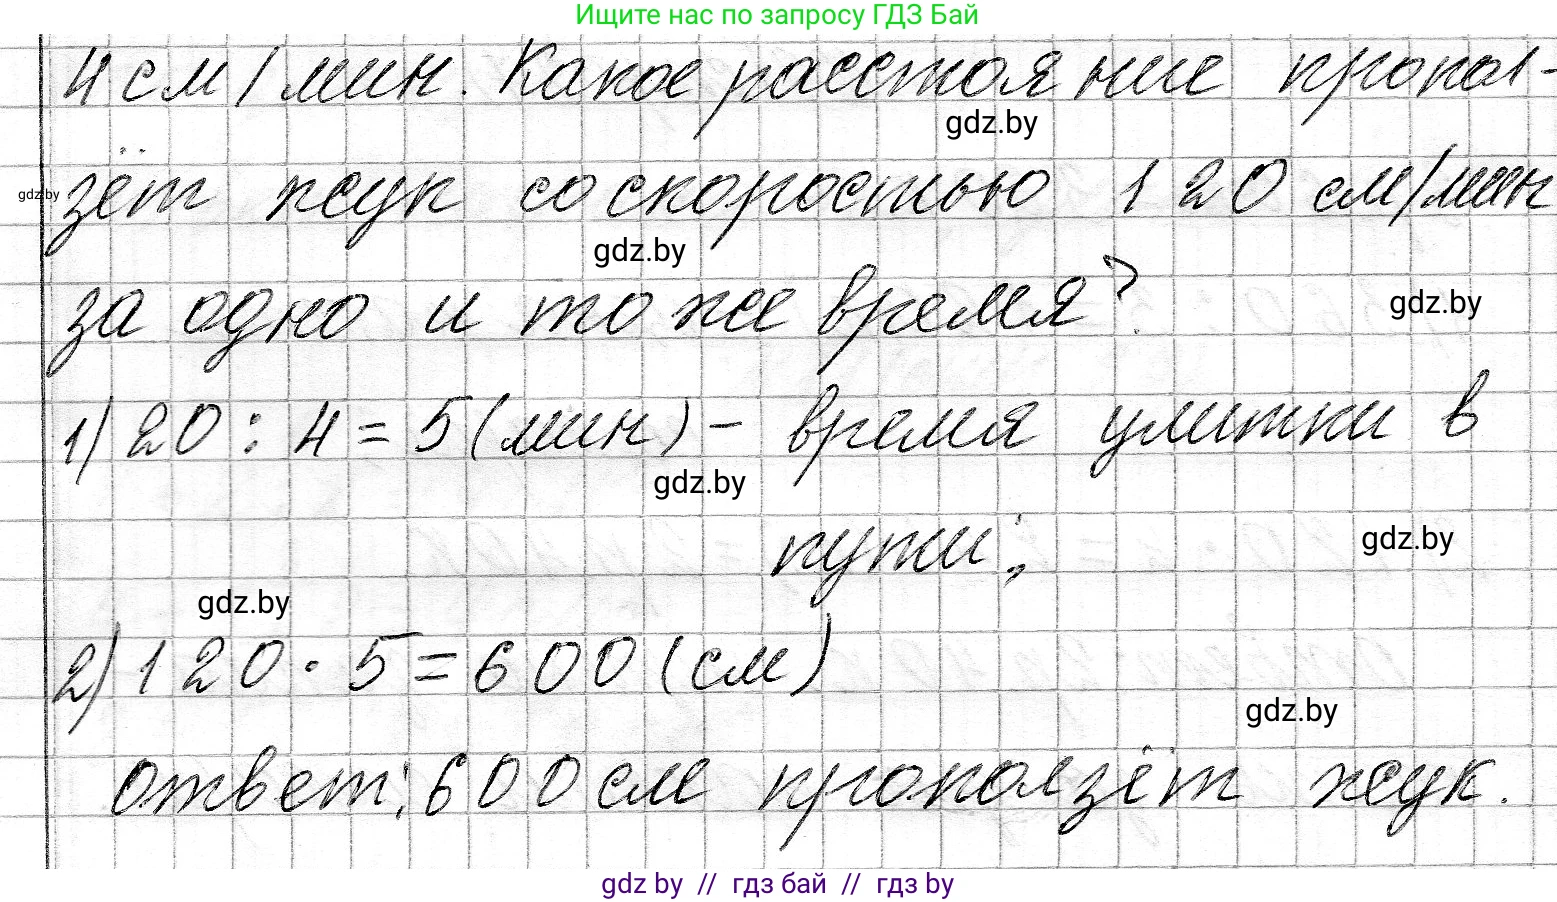 Ищите нас по запросу ГДЗ Бай
4 см/мин. Какое расстояние пропол-
gdz.by
зёт жук со скоростью 120 см/мин
gdz.by
gdz.by
за одно и то же время?
gdz.by
1) 20 : 4 = 5 (мин) – время улитки в
gdz.by
пути;
gdz.by
gdz.by
2) 120 · 5 = 600 (см)
gdz.by
ответ: 600 см проползёт жук.
gdz by // гдз бай // gdz by